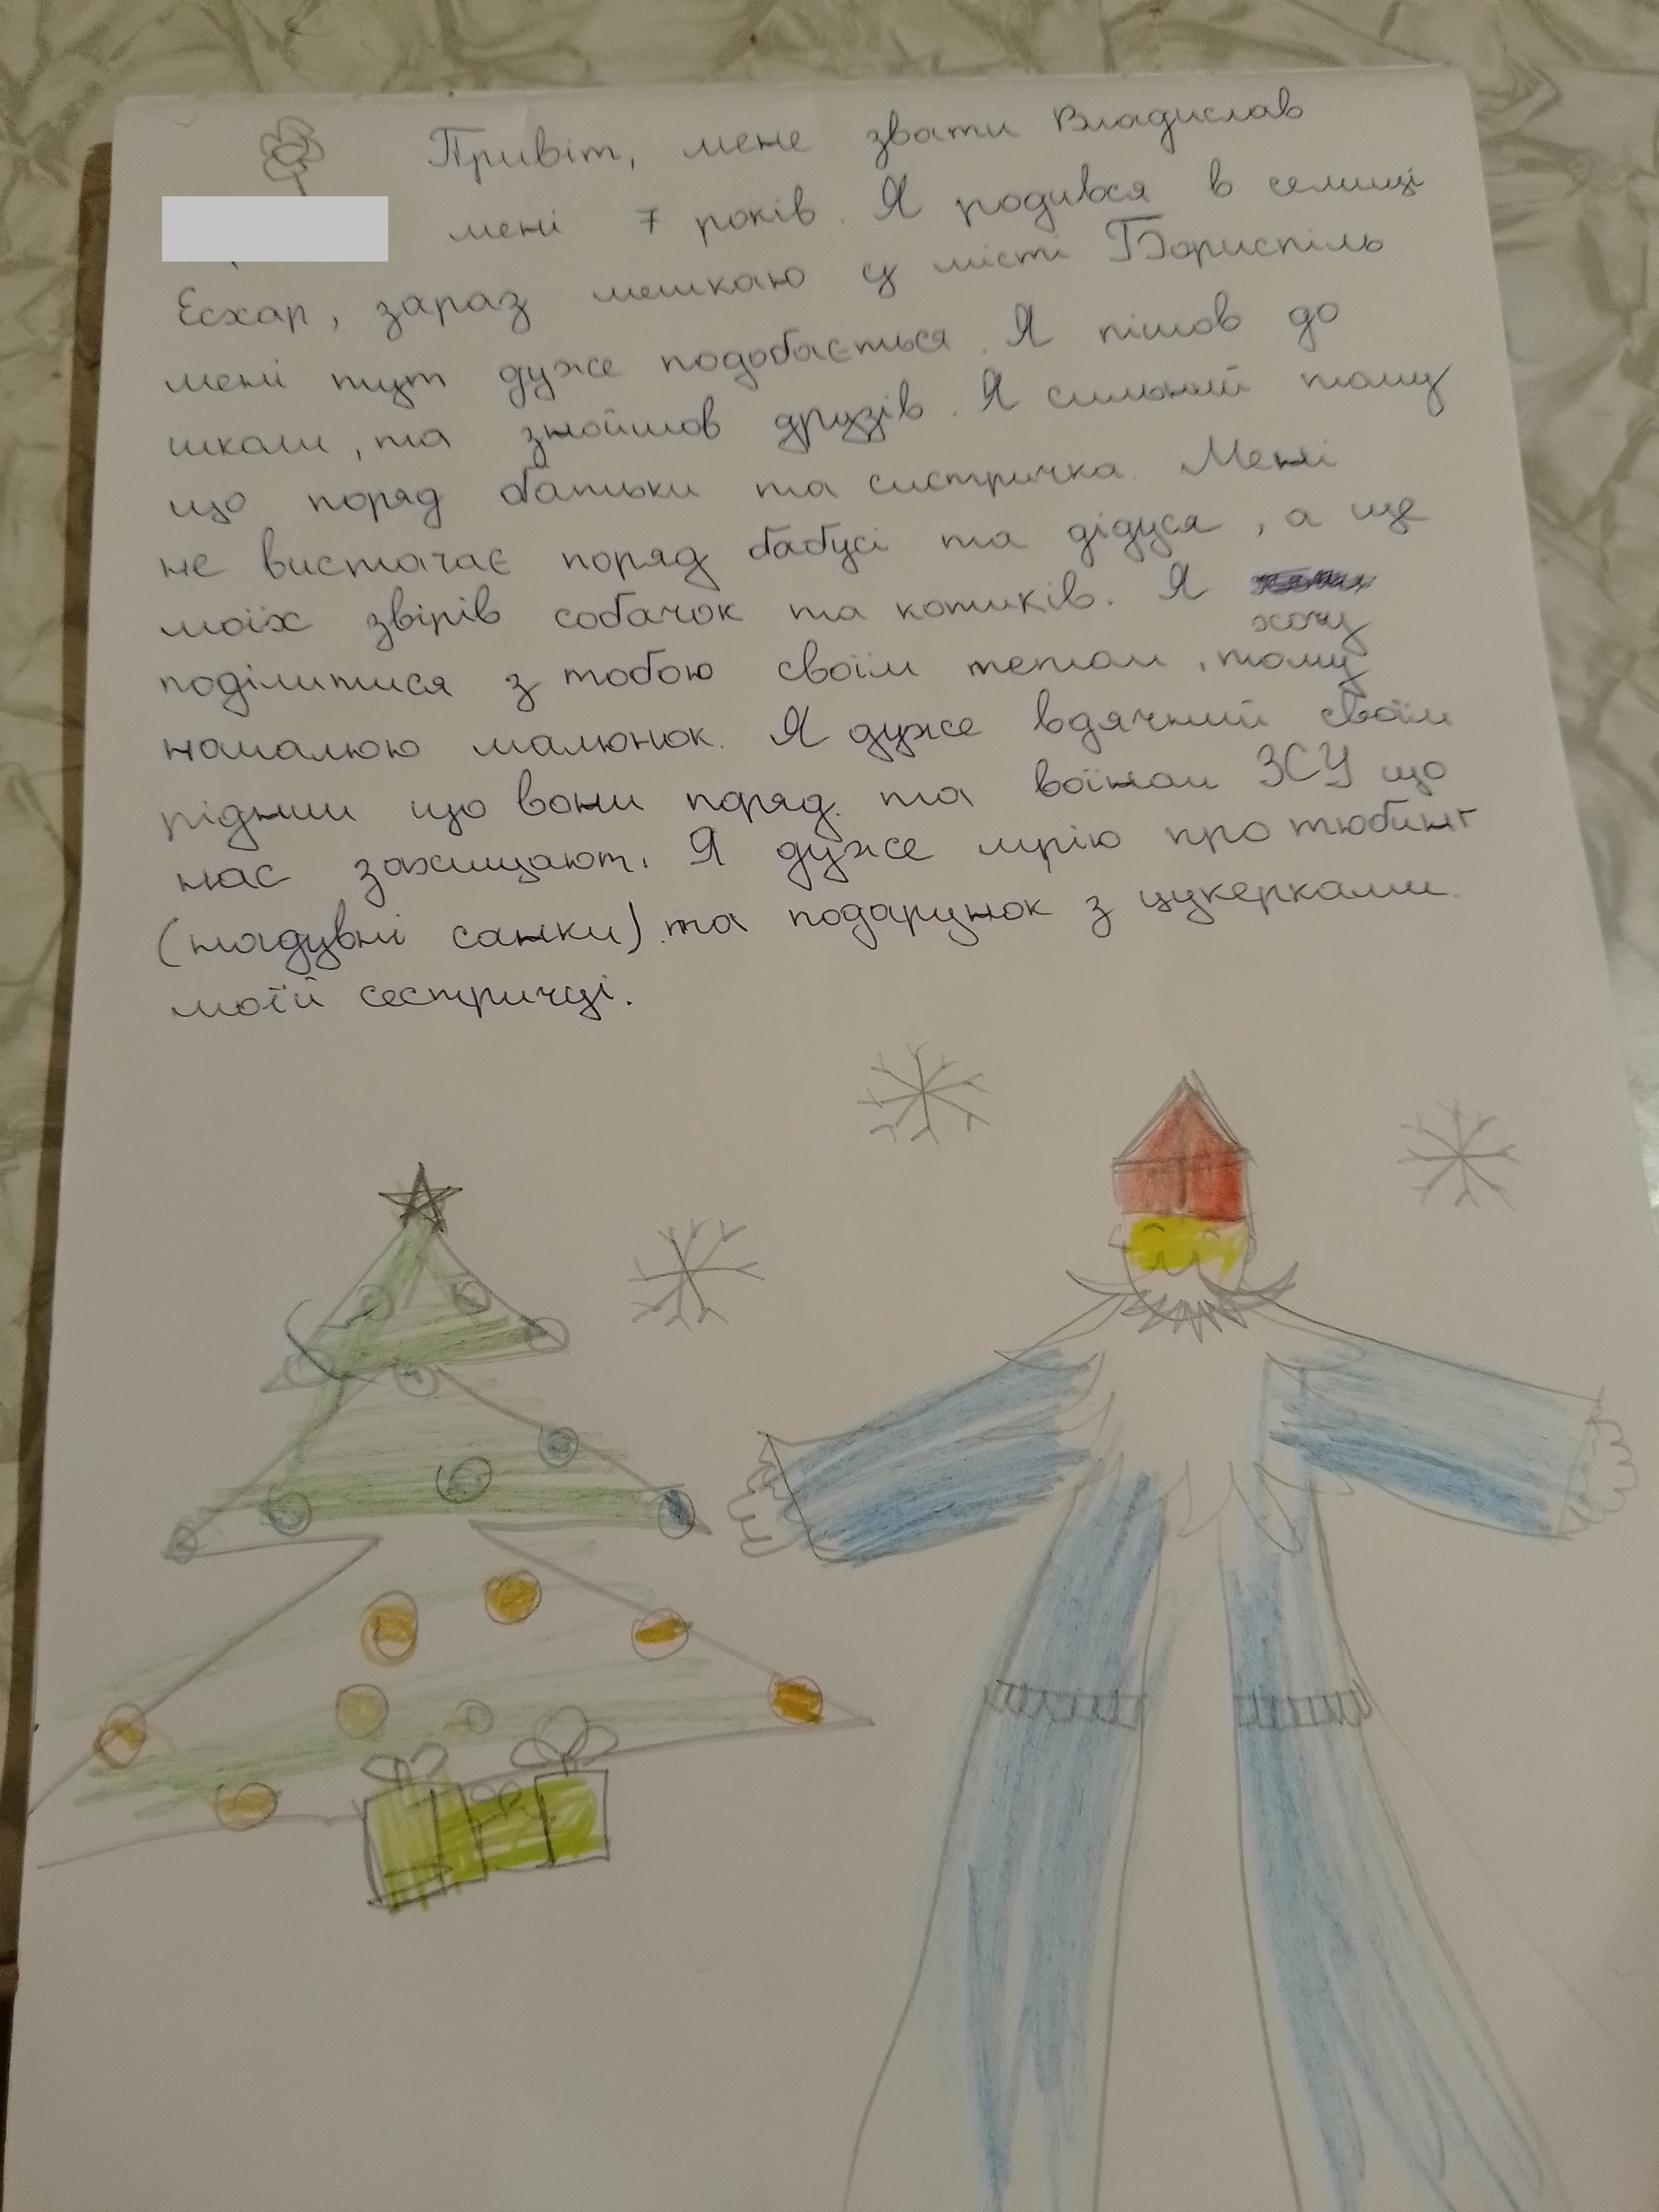 Привіт, мене звати Владислав
мені 7 років. Я родився в селищі
Есхар, зараз мешкаю у місті Бориспіль
мені тут дуже подобається. Я пішов до
школи, та знойшов друзів. Я сильний тому
що поряд батьки та систричка. Мені
не вистачає поряд бабусі та дідуся, а ще
моїх звірів собачок та котиків. Я
хочу
поділитися з тобою своїм теплом, тому
намалюю малюнок. Я дуже вдячний своїм
рідним що вони поряд. та воїнам ЗСУ що
нас захищают. Я дуже мрію про тюбинг
(надувні санки). та подарунок з цукерками.
моїй сестричці.